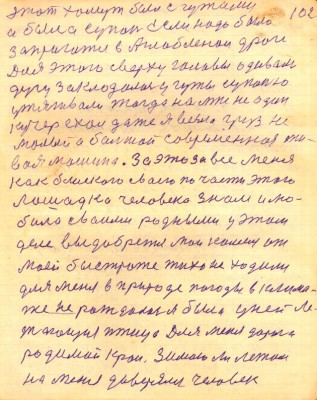 этот хомут был с гужами 102
а была супонь Если надо было
запрягать в Аглобленой дроге
Для этого сверху головы одевали
дугу закладали у гужы супонью
утягивали тогда на мне не один
кучер ехал даже я везла груз не
малый а балшой современная жи-
вая машина. За это за все меня
как близкого своего по части этого
лошадка человека знали и лю-
била своими родными у этом
деле
моей быстроте тихо не ходили
для меня в природе погоды в
же не рождалася я была у ней ле-
тающия птицо Для меня дорога
родимай край. Зимою ли летом
на меня даверял человек